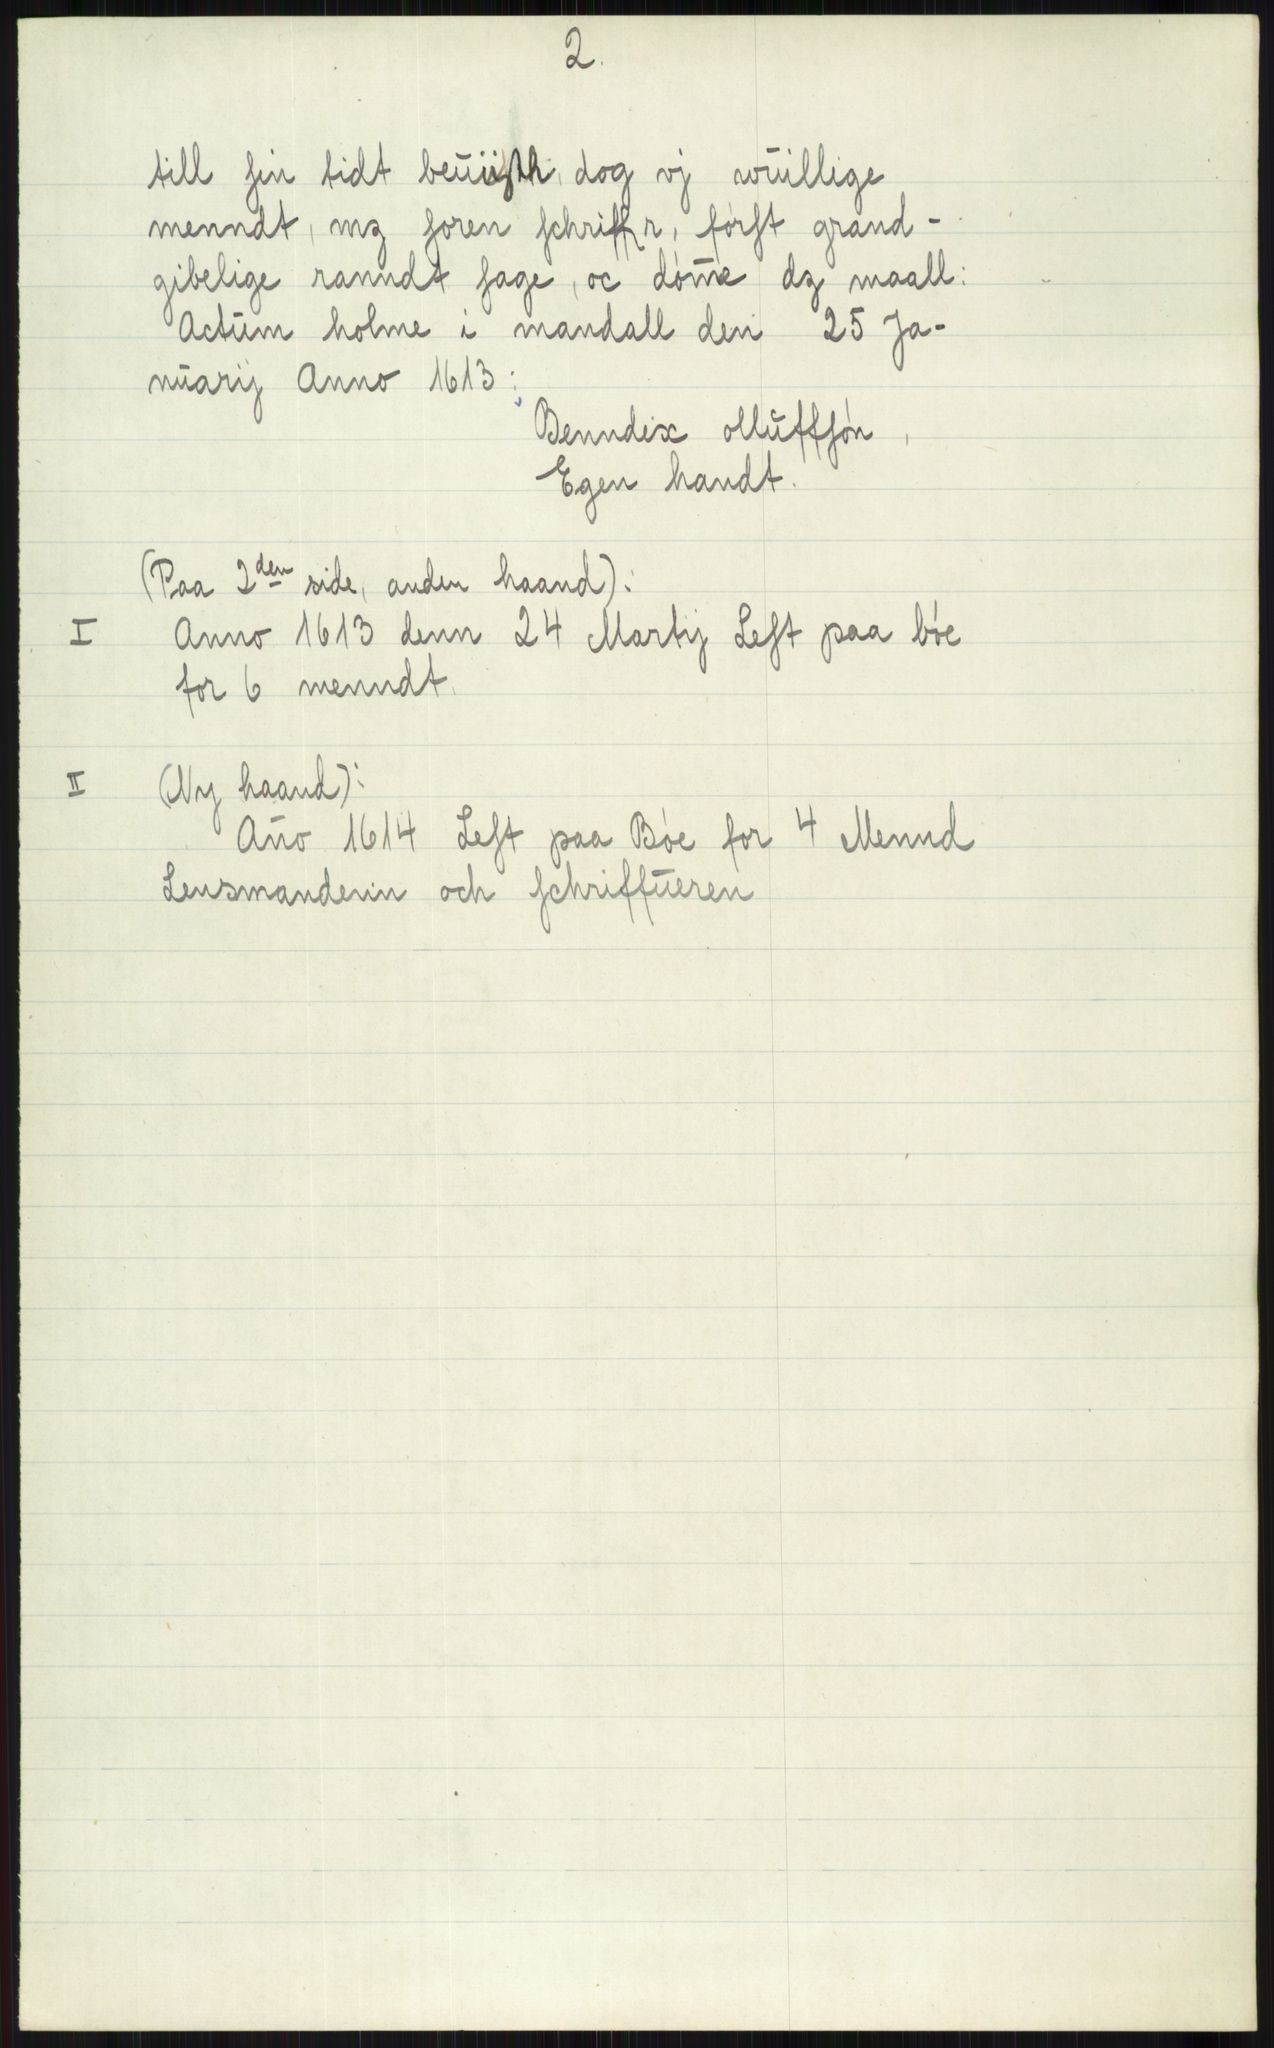 2.
till sin tidt beuiisth, dog vj wuillige
menndt, mz foren schriffr, først grand-
gibelige ranndt sage, oc døme dz maall:
Actum holme i mandall den 25 Ja-
nuarij Anno 1613:
Benndix olluffsøn,
Egen handt.
(Paa 2den side, anden haand):
I Anno 1613 denn 24 Martij Lest paa bøe
for 6 menndt.
II (Ny haand):
Año 1614 Lest paa Bøe for 4 Mennd
Lensmandenn och schriffueren